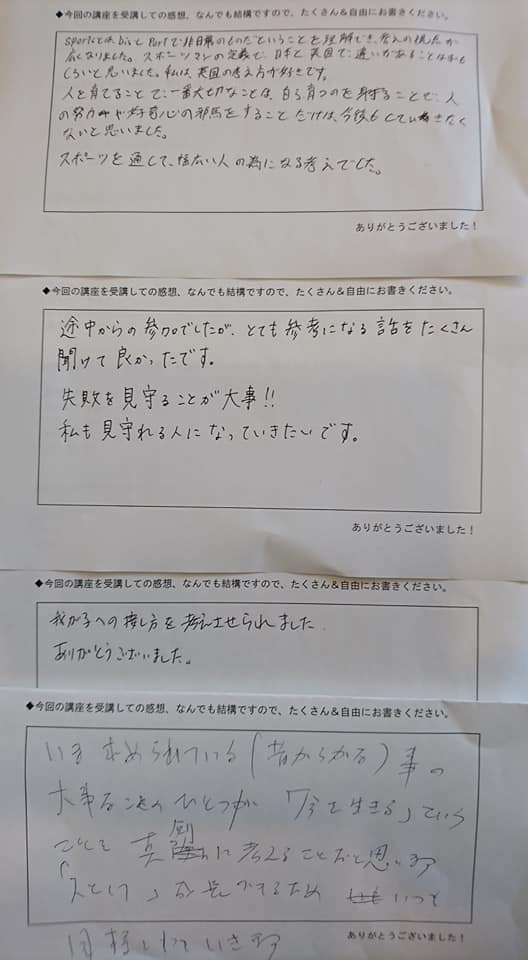 ◆今回の講座を受講しての感想、なんでも結構ですので、たくさん＆自由にお書きください。
sportsとは、disとPortで非日常のものだということを理解でき、考えの視点が
広くなりました。スポーツマンの定義で、日本と英国で、違いがあることはおも
しろいと思いました。私は、英国の考え方が好きです。
人を育てることで、一番大切なことは、自ら育つのを見守ることで、人
の努力や好奇心の邪魔をすることだけは、今後もしていきたく
ないと思いました。
スポーツを通して、幅広い人の為になる考えでした。
ありがとうございました！
◆今回の講座を受講しての感想、なんでも結構ですので、たくさん＆自由にお書きください。
途中からの参加でしたが、とても参考になる話をたくさん
聞けて良かったです。
失敗を見守ることが大事!!
私も見守れる人になっていきたいです。
ありがとうございました！
◆今回の講座を受講しての感想、なんでも結構ですので、たくさん＆自由にお書きください。
我が子への接し方を考えさせられました
ありがとうございました。
◆今回の講座を受講しての感想、なんでも結構ですので、たくさん＆自由にお書きください。
いま求められている(昔からかる)事の
大事なことのひとつが「今を生きる」という
ことを真剣に考えることだと思います
「人として」成長できるため いつも
ありがとうございました！
目標としていきます